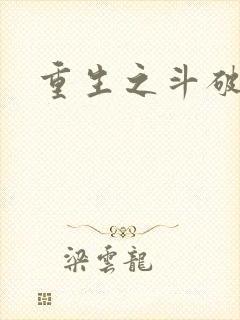 重生之斗破
梁雲龍